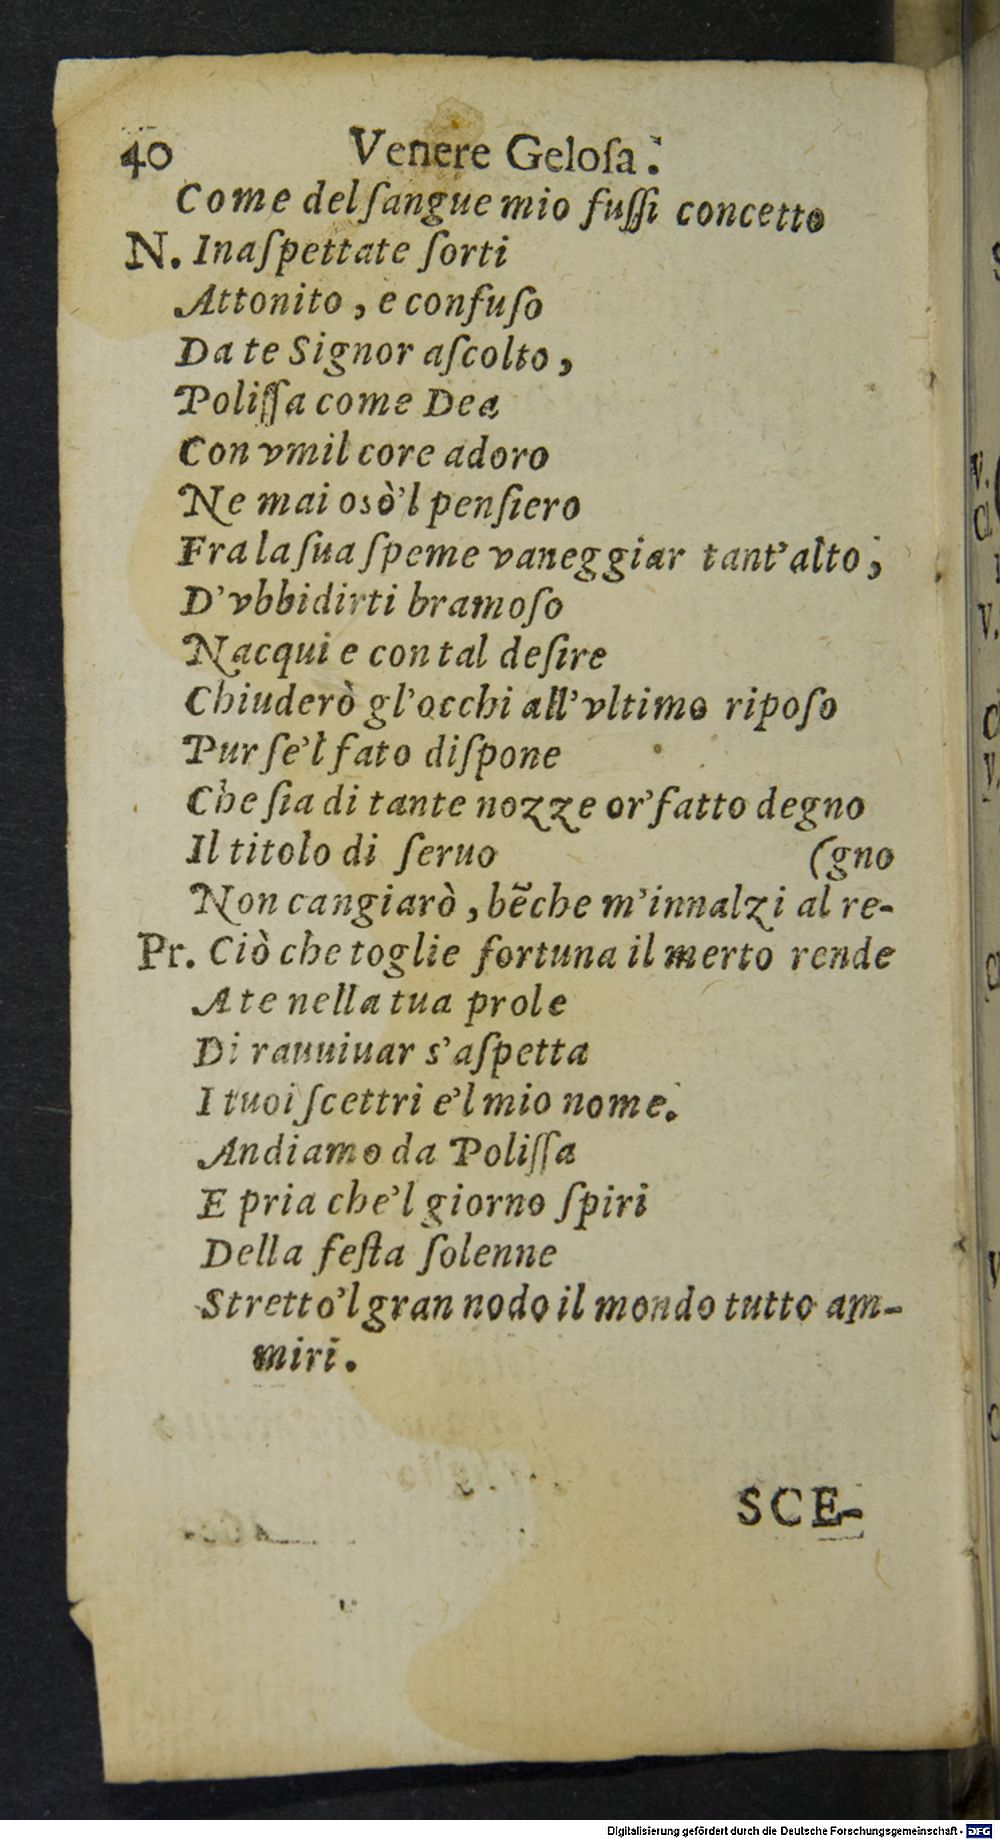 40 Venere Geloſa.
Come del ſangue mio fuſſi concetto
N. Inaſpettate ſorti
Attonito, e confuſo
Da te Signor aſcolto,
Poliſſa come Dea
Con vmil core adoro
Ne mai osò'l penſiero
Fra la ſua ſpeme vaneggiar tant'alto;
D'vbbidirti bramoſo
Nacqui e con tal deſire
Chiuderò gl'occhi all'vltimo ripoſo
Pur ſe'l fato diſpone
Che ſia di tante nozze or'fatto degno
Il titolo di ſeruo (gno
Non cangiarò, bẽche m'innalzi al re-
Pr. Ciò che toglie fortuna il merto rende
A te nella tua prole
Di rauuiuar s'aſpetta
I tuoi ſcettri e'l mio nome.
Andiamo da Poliſſa
E pria che'l giorno ſpiri
Della feſta ſolenne
Stretto'l gran nodo il mondo tutto am-
miri.
SCE-
Digitalisierung gefördert durch die Deutsche Forschungsgemeinschaft - DFG